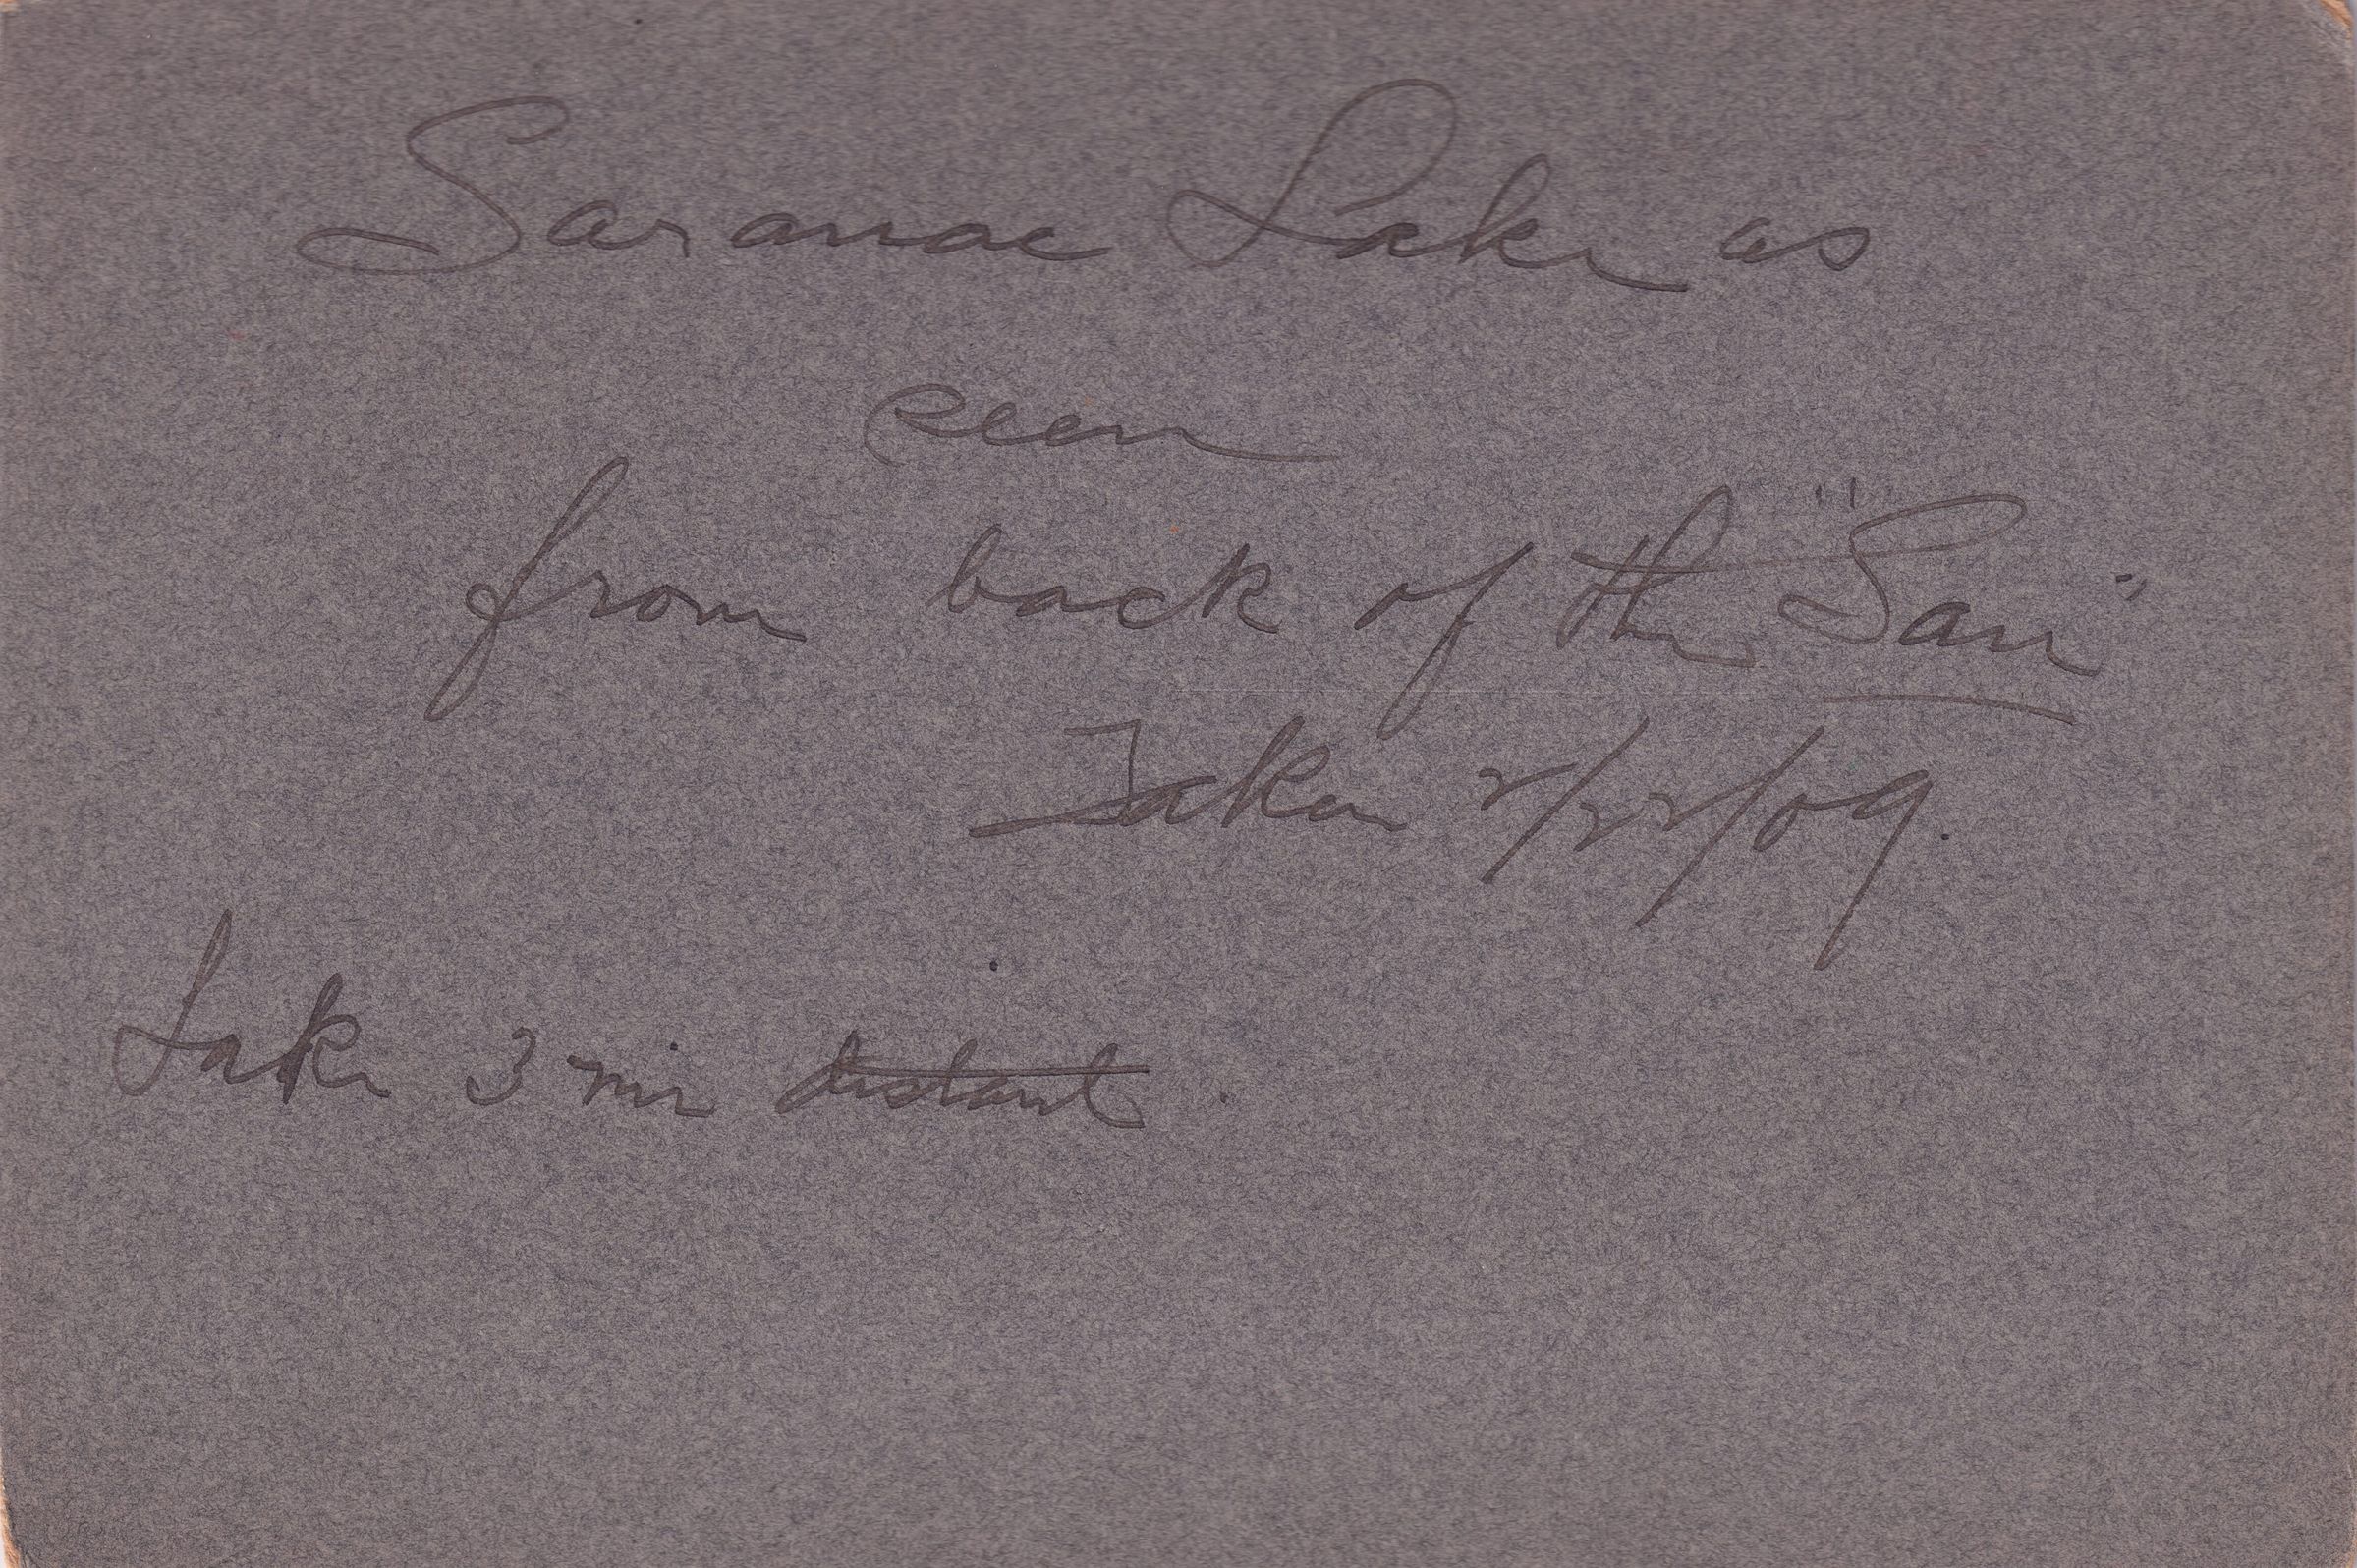 Saranac Lake as
seen
from back of the "San"
Taken 2/22/09.
Lake 3 mi distant.